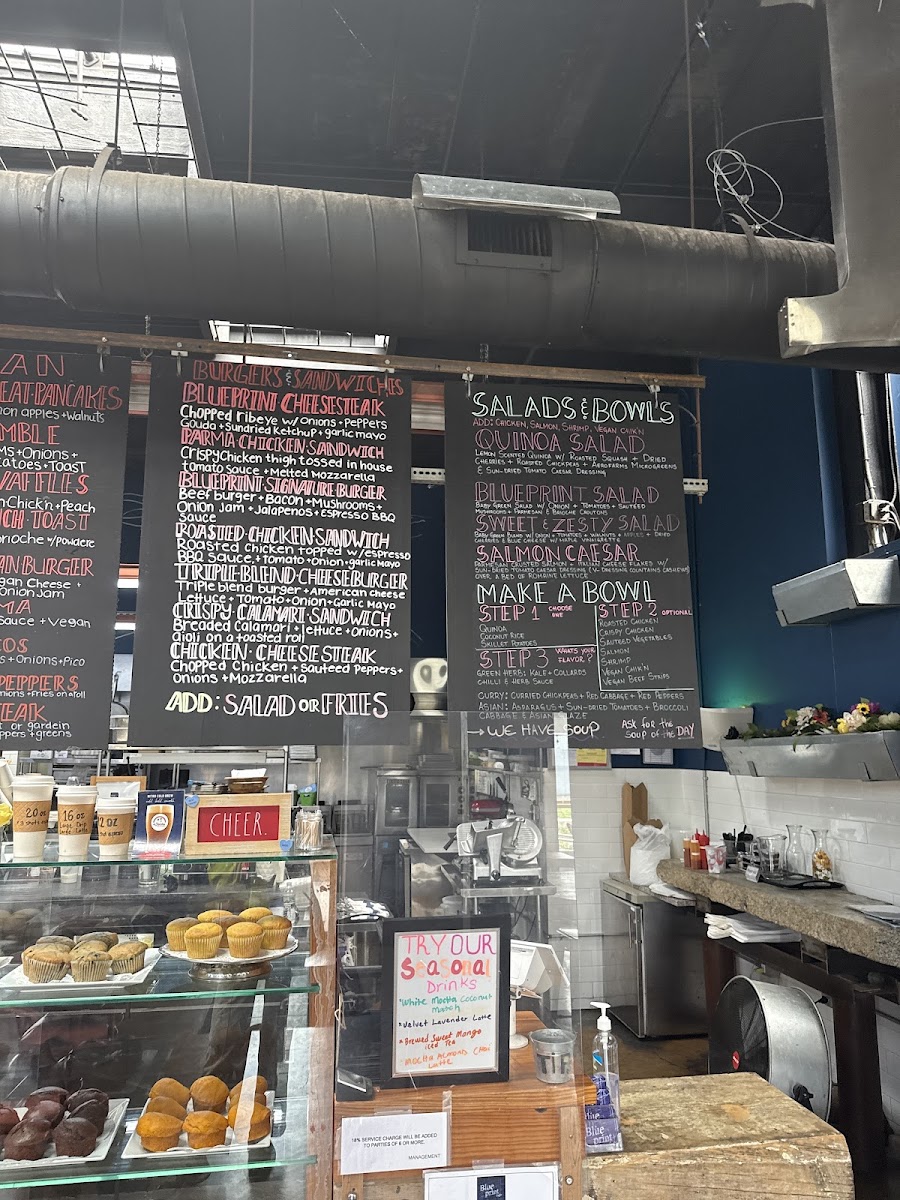 AN
EAT PANCAKES
on apples + Walnuts
MBLE
MS + Onions +
atoes + Toast
WAFFLES
n Chick'n + Peach
CH TOAST
brioche w/powdere
AN BURGER
gan Cheese +
Onion Jam
MA
Sauce + Vegan
COS
s + Onions + Pico
PEPPERS
nions + Fries on a roll
TEAK
or gardein
ppers + greens
BURGERS & SANDWICHES
BLUEPRINT CHEESESTEAK
Chopped ribeye w/ Onions + Peppers
Gouda + Sundried Ketchup + garlic mayo
PARMA CHICKEN SANDWICH
Crispy Chicken thigh tossed in house
tomato sauce + Melted Mozzarella
BLUEPRINT SIGNATURE BURGER
Beef burger + Bacon + Mushrooms +
Onion Jam + Jalapenos + Espresso BBQ
Sauce
ROASTED CHICKEN SANDWICH
Roasted chicken topped w/espresso
BBQ Sauce, + Tomato + Onion + garlic Mayo
TRIPLE BLEND CHEESE BURGER
Triple blend burger + American cheese
Lettuce + Tomato + Onion + Garlic Mayo
CRISPY CALAMARI SANDWICH
Breaded Calamari + lettuce + onions +
aioli on a toasted roll
CHICKEN CHEESE STEAK
Chopped Chicken + Sauteed Peppers +
Onions + Mozzarella
ADD: SALAD OR FRIES
SALADS & BOWL'S
ADD: CHICKEN, SALMON, SHRIMP, VEGAN CHIK'N
QUINOA SALAD
LEMON SCENTED QUINOA W/ ROASTED SQUASH + DRIED
CHERRIES + ROASTED CHICKPEAS + AEROFARMS MICROGREENS
& SUN-DRIED TOMATO CAESAR DRESSING
BLUEPRINT SALAD
BABY GREEN SALAD W/ ONION + TOMATOES + SAUTEED
MUSHROOMS + PARMESAN & BRIOCHE CROUTONS
SWEET & ZESTY SALAD
BABY GREEN BLEND W/ ONION + TOMATOES + WALNUTS + APPLES + DRIED
CHERRIES & BLUE CHEESE W/ MAPLE VINAIGRETTE
SALMON CAESAR
PARMESAN CRUSTED SALMON + ITALIAN CHEESE FLAKES W/
SUN-DRIED TOMATO CAESAR DRESSING
OVER A BED OF ROMAINE LETTUCE
MAKE A BOWL
STEP 1 CHOOSE ONE
QUINOA
COCONUT RICE
SKILLET POTATOES
STEP 2 OPTIONAL
ROASTED CHICKEN
CRISPY CHICKEN
SAUTEED VEGETABLES
SALMON
SHRIMP
VEGAN CHIK'N
VEGAN BEEF STRIPS
STEP 3 WHATS YOUR FLAVOR?
GREEN HERB: KALE + COLLARDS
CHILLI & HERB SAUCE
CURRY: CURRIED CHICKPEAS + RED CABBAGE + RED PEPPERS
ASIAN: ASPARAGUS + SUN-DRIED TOMATOES + BROCCOLI
CABBAGE & ASIAN GLAZE
→ WE HAVE SOUP
ASK FOR THE
SOUP OF THE DAY
20 oz
16 oz
12 oz
CHEER.
TRY OUR
Seasonal
Drinks
*White Mocha Coconut
Match
*Velvet Lavender Latte
*Brewed Sweet Mango
Iced Tea
*Mocha Almond Chai
Latte
18% SERVICE CHARGE WILL BE ADDED
TO PARTIES OF 6 OR MORE.
MANAGEMENT
Blue
print
Blue
print